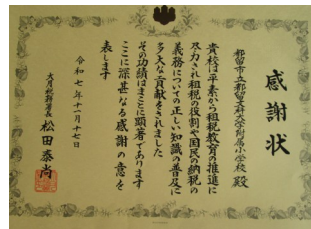 感謝状
都留市立都留文科大学附属小学校 殿
貴校は平素から租税教育の推進に
尽力され租税の役割や国民の納税の
義務についての正しい知識の普及に
多大な貢献をされました
その功績はまことに顕著であります
ここに深甚なる感謝の意を
表します
令和七年十一月十七日
大月税務署長 松田泰尚